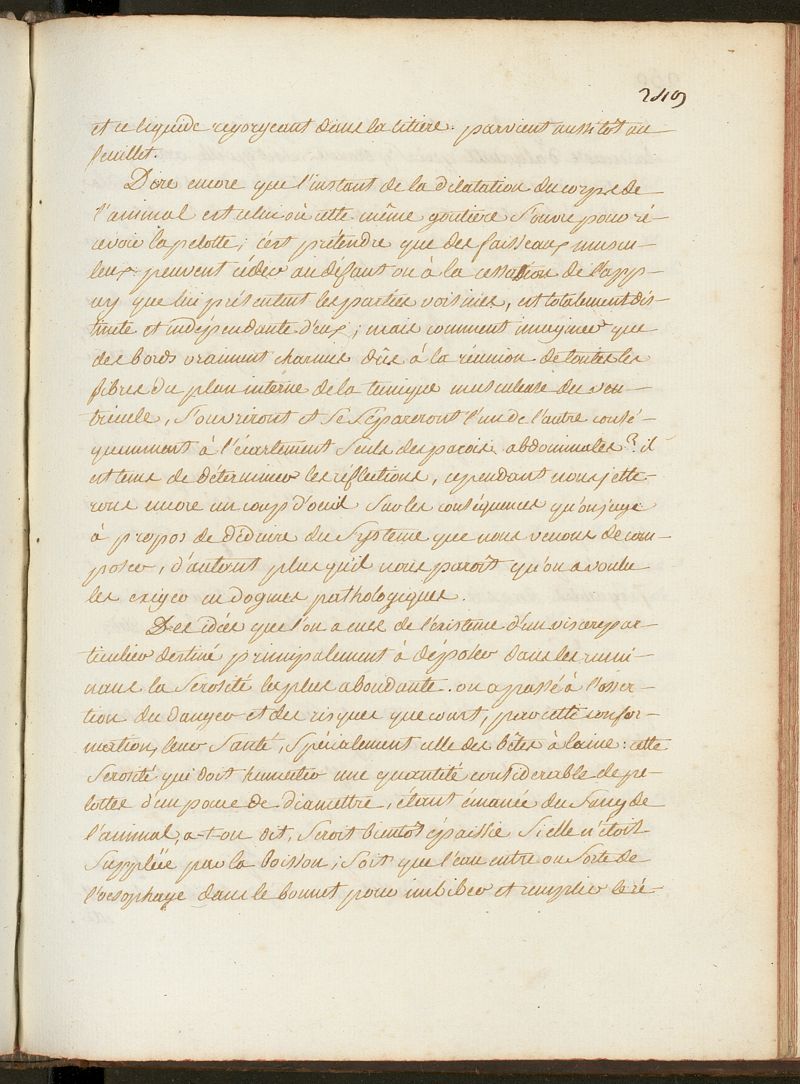 249
et ce liquide regorgeant dans la litiere. parvient aussitot au
feuillet.
Dire encore que l'instant de la dilatation du corps de
l'animal est celui où cette même goutiere s'ouvre pour ré-
cevoir la pelotte; c'est prétendre que des faisseaux muscu-
leux peuvent céder au défaut ou à la cessation de l'app-
uy que lui présentent les parties voisines, est totalement dis-
tincte et indépendante d'eux; mais comment imaginer que
des bords vraiment charnus dûs à la réunion de toutes les
fibres du plan interne de la tunique musculeuse du ven-
tricule, s'ouvriront et se sépareront l'un de l'autre consé-
quemment à l'écartement seuls des parois abdominales? il
est tems de déterminer les réflections, cependant nous jette-
rons encore un coup d'oeuil sur les conséquences qu'on juge
à propos de déduire du systeme que nous venons de com-
poser, d'autant plus qu'il nous paroît qu'on a voulu
les eriger en dogmes pathologiques.
Des idées que l'on a eues de l'existence d'un viscere par-
ticulier destiné principalement à déposer dans les rumi-
nans la serosité les plus abondante. on a passé à l'asser-
tion du danger et des risques que court, par cette confor-
mation, leur santé, spécialement celle des bêtes à laine: cette
serosité qui doit humecter une quantité considerable de pe-
lottes d'un pouce de diamettre, étant émanée du sang de
l'animal, a-t-on dit, seroit bientôt épaissie si elle n'étoit
suppléée par la boisson; soit que l'eau entre ou sorte de
l'oesophage dans le bonnet pour imbiber et remplir le ré-